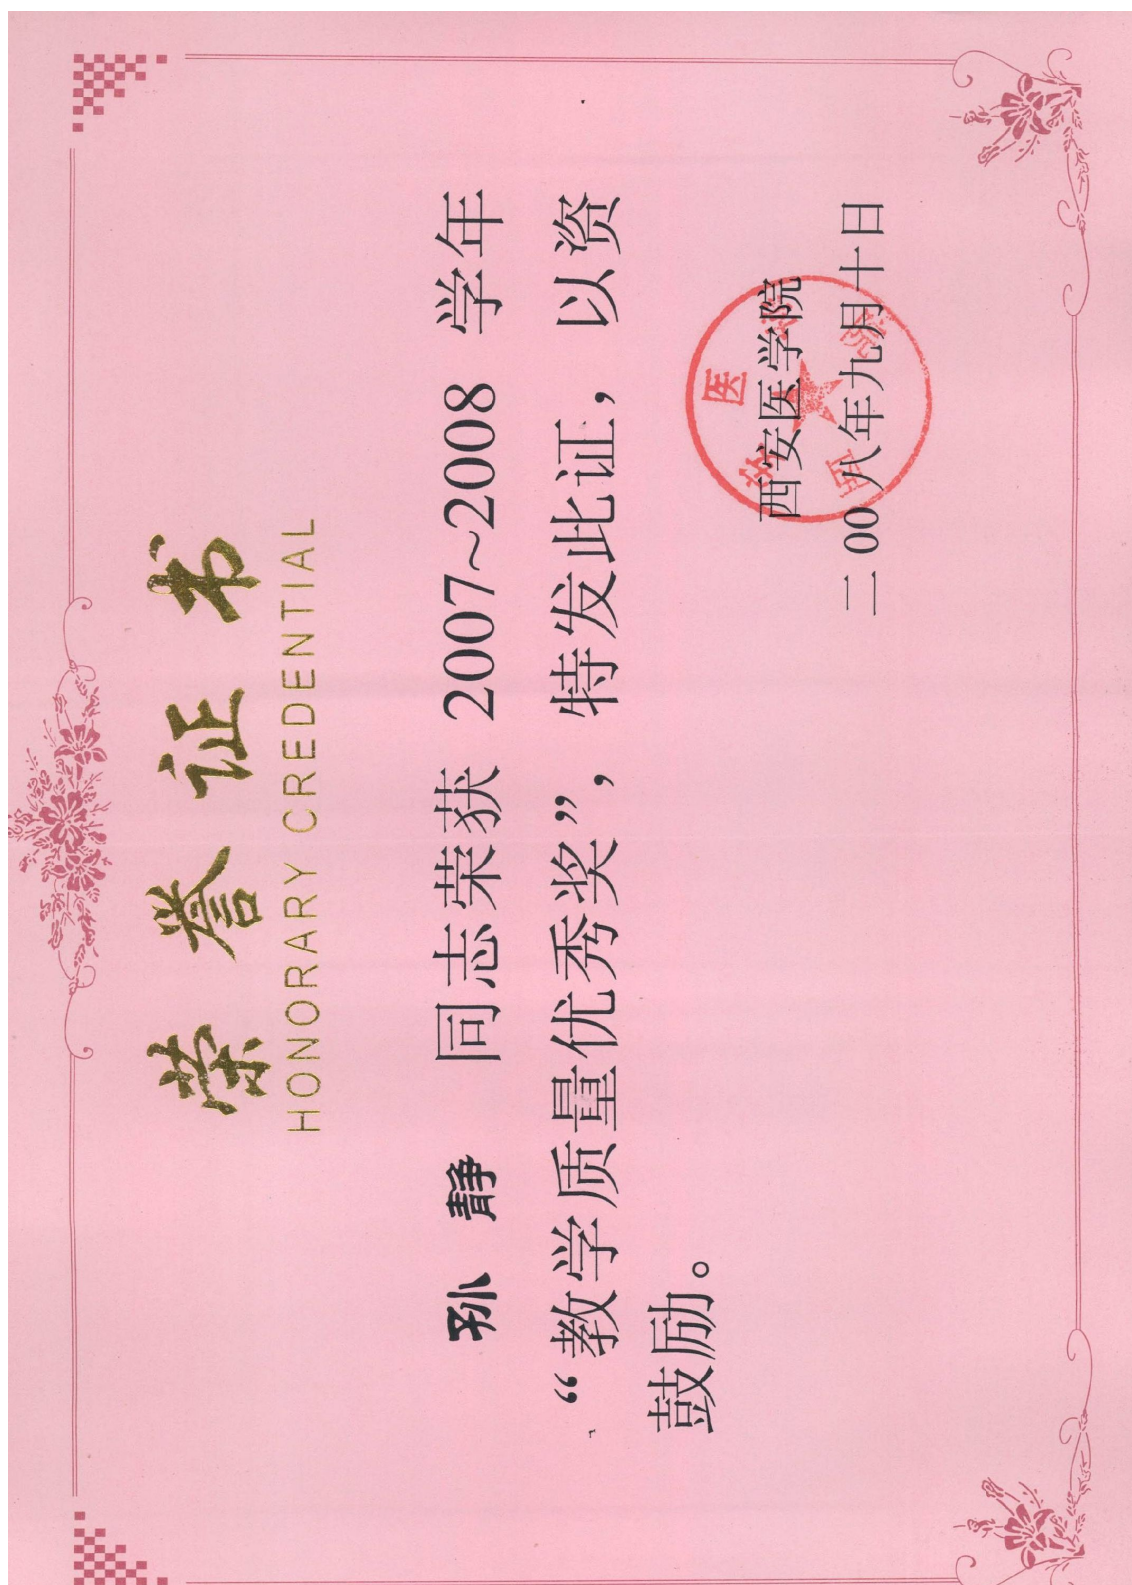 荣誉证书
HONORARY CREDENTIAL
孙静 同志荣获 2007~2008 学年
“教学质量优秀奖”，特发此证，以资
鼓励。
西安医学院
二00八年九月十日
西安医学院